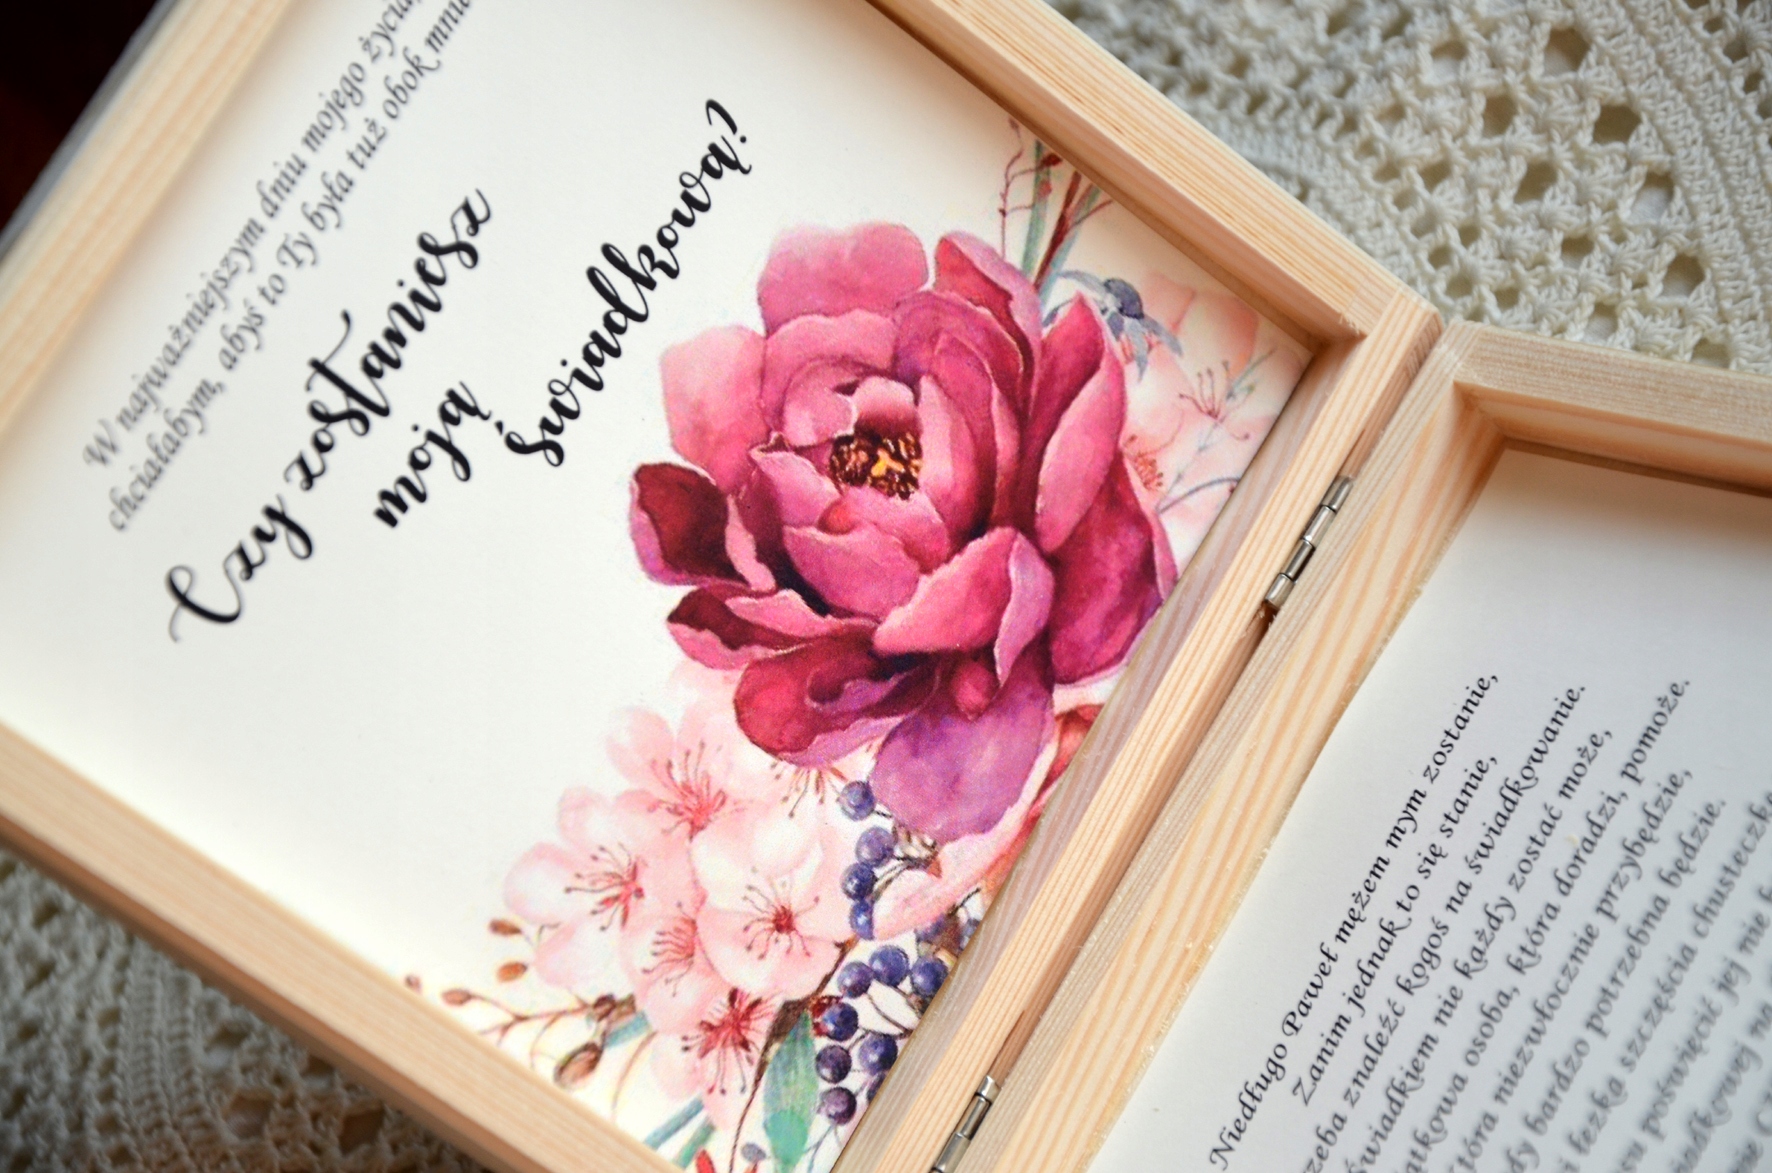 W najważniejszym dniu mojego życia,
chciałabym, abyś to Ty była tuż obok mnie
Czy zostaniesz
moją
świadkową?
Niedługo Paweł mężem mym zostanie,
Zanim jednak to się stanie,
znaleźć kogoś na świadkowanie.
świadkiem nie każdy zostać może,
osoba, która doradzi, pomoże.
niezwłocznie przybędzie,
bardzo potrzebna będzie.
łezka szczęścia
poświęcić jej nie